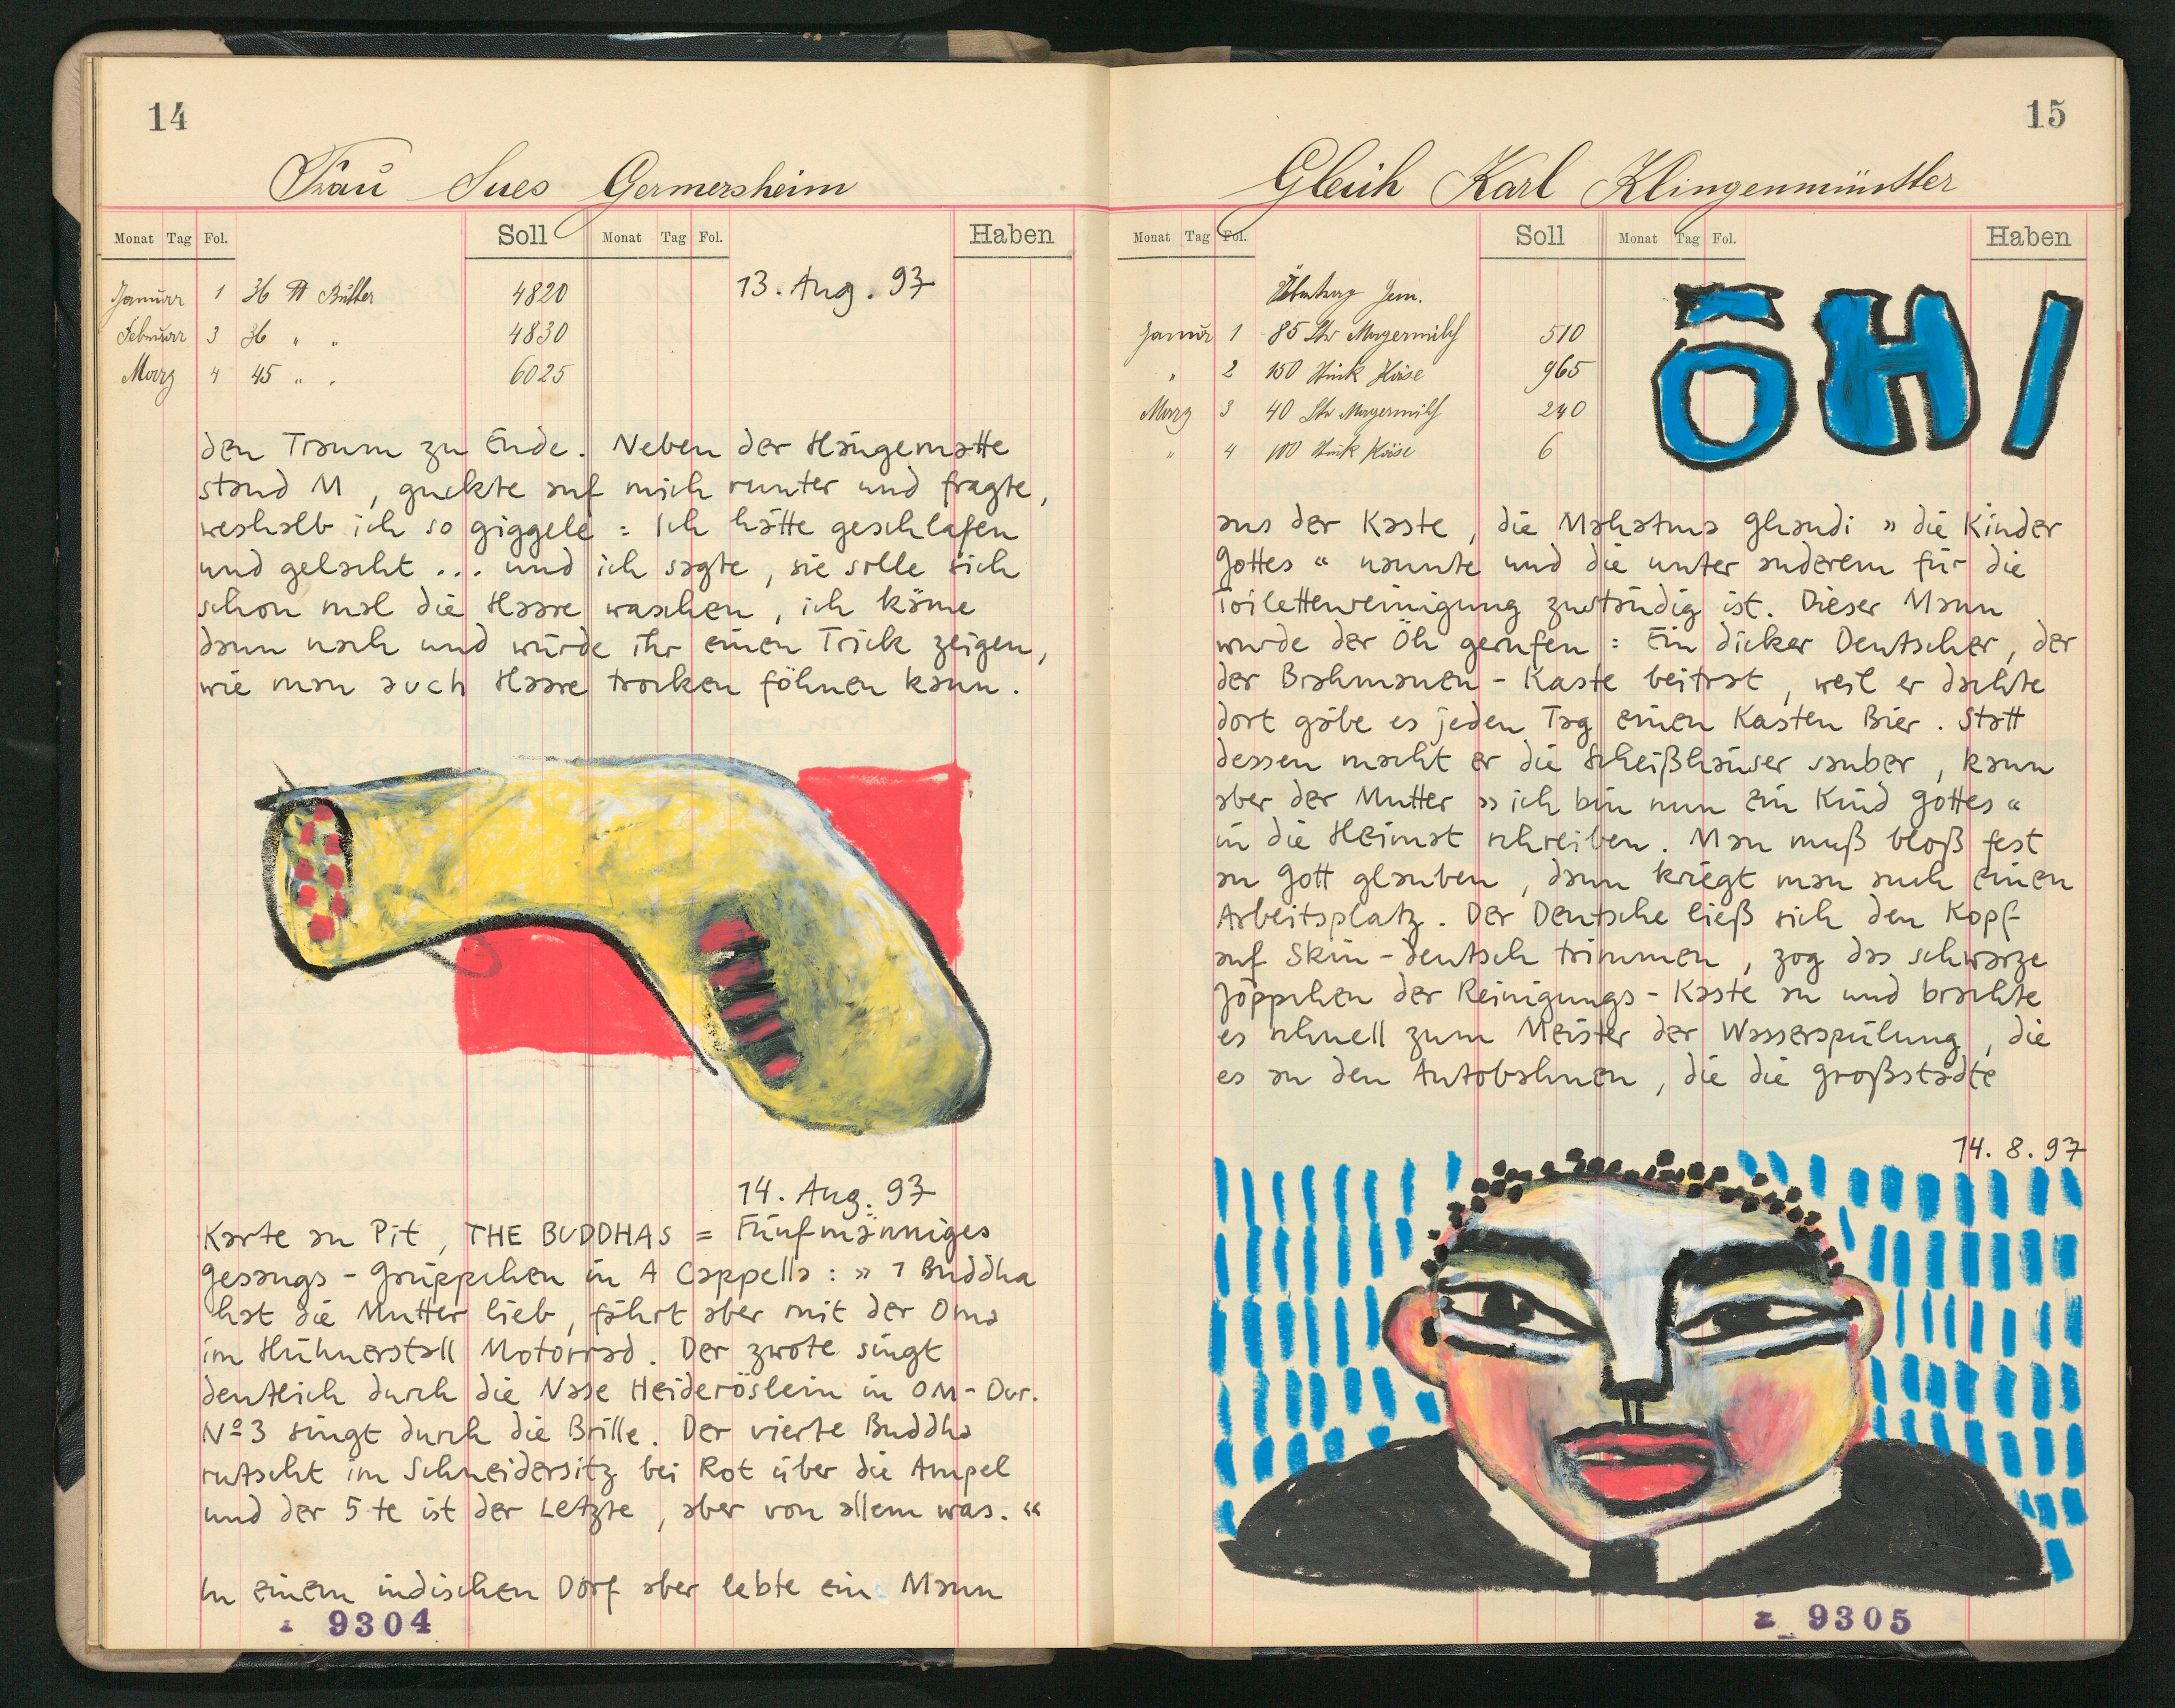 14
Frau Sues Germersheim
Monat Tag Fol. Soll Monat Tag Fol. Haben
13. Aug. 97
Januar 1 36 ℔ Butter 4820
Februar 3 36 " " 4830
Marz 4 45 " " 6025
den Traum zu Ende. Neben der Hängematte
stand M, guckte auf mich runter und fragte,
weshalb ich so giggele: Ich hätte geschlafen
und gelacht ... und ich sagte, sie solle sich
schon mal die Haare waschen, ich käme
dann nach und würde ihr einen Trick zeigen,
wie man auch Haare trocken föhnen kann.
14. Aug. 97
Karte an Pit, THE BUDDHAS = Fünfmänniges
Gesangs-Grüppchen in A Cappella: » 1 Buddha
hat die Mutter lieb, fährt aber mit der Oma
im Hühnerstall Motorrad. Der zwote singt
deutlich durch die Nase Heideröslein in OM-Dur.
Nº3 singt durch die Brille. Der vierte Buddha
rutscht im Schneidersitz bei Rot über die Ampel
und der 5te ist der Letzte, aber von allem was. «
In einem indischen Dorf aber lebte ein Mann
9304
15
Gleich Karl Klingenmünster
Monat Tag Fol. Soll Monat Tag Fol. Haben
Januar 1 85 Ltr Magermilch 510
" 2 150 Stück Käse 965
Marz 3 40 Ltr Magermilch 240
" 4 100 Stück Käse 6
ÖH!
aus der Kaste, die Mahatma Ghandi » die Kinder
Gottes « nannte und die unter anderem für die
Toilettenreinigung zuständig ist. Dieser Mann
wurde der Öh gerufen: Ein dicker Deutscher, der
der Brahmanen-Kaste beitrat, weil er dachte
dort gäbe es jeden Tag einen Kasten Bier. Statt
dessen macht er die Scheißhäuser sauber, kann
aber der Mutter » ich bin nun ein Kind Gottes «
in die Heimat schreiben. Man muß bloß fest
an Gott glauben, dann kriegt man auch einen
Arbeitsplatz. Der Deutsche ließ sich den Kopf
auf Skin-deutsch trimmen, zog das schwarze
Jöppchen der Reinigungs-Kaste an und brachte
es schnell zum Meister der Wasserspülung, die
es an den Autobahnen, die die Großstädte
14.8.97
9305